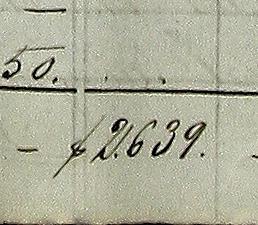 —
50. . .
– ƒ 2639. –